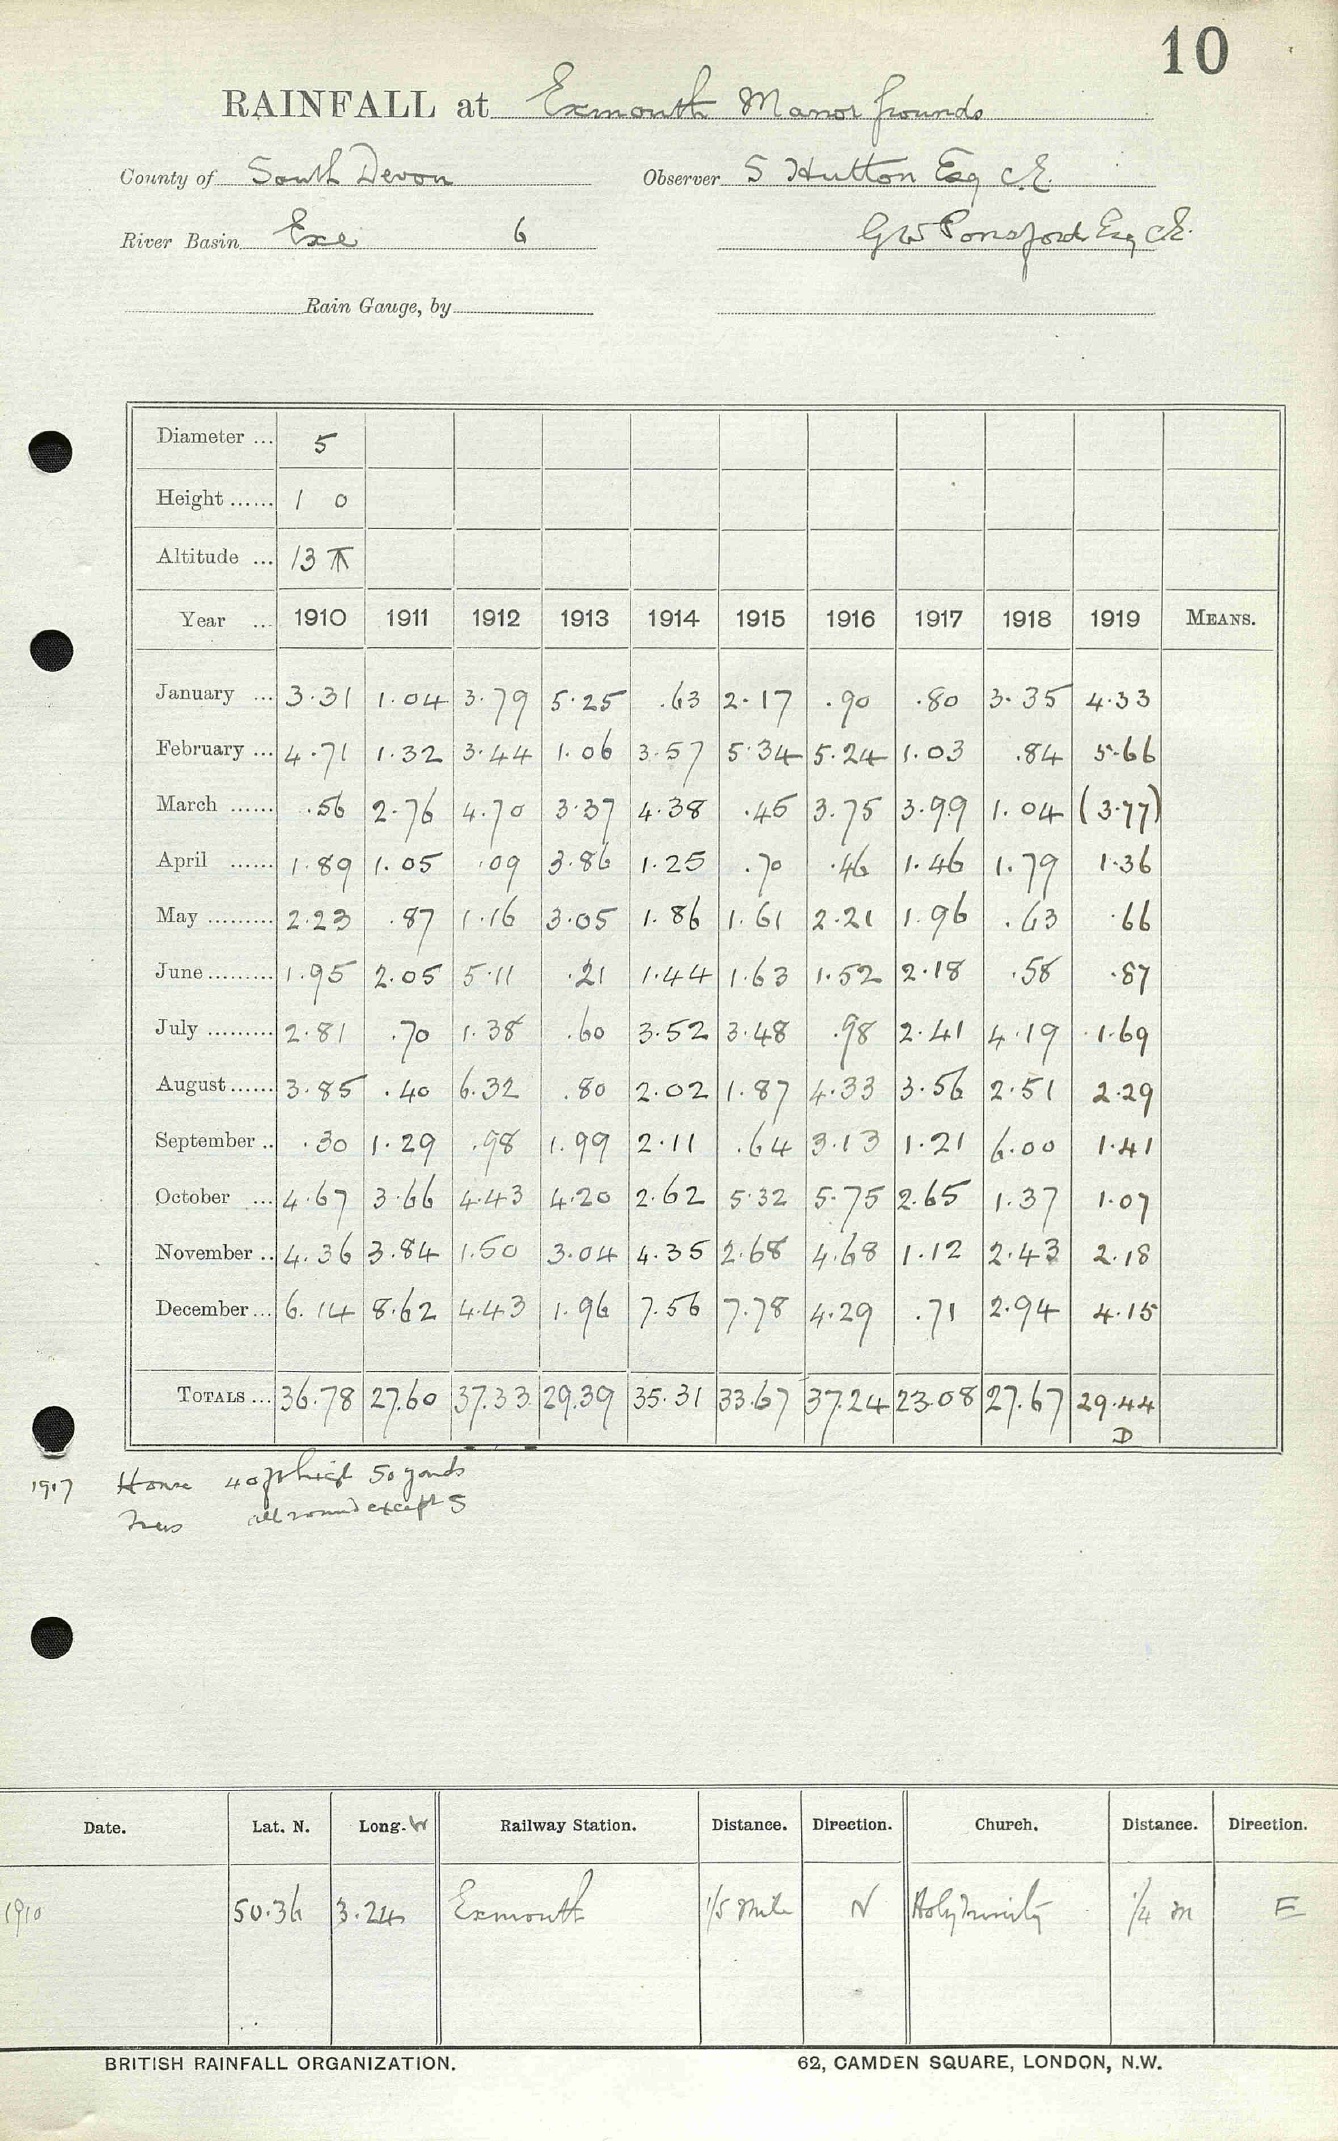 10
RAINFALL at Exmouth Manor Grounds
County of South Devon Observer S Hutton Esq C.E.
River Basin Exe 6 G W Ponsford Esq C.E.
Rain Gauge, by
Diameter ... 5
Height ...... 1 0
Altitude ... 13
Year ... 1910 1911 1912 1913 1914 1915 1916 1917 1918 1919 MEANS.
January ... 3.31 1.04 3.79 5.25 .63 2.17 .90 .80 3.35 4.33
February ... 4.71 1.32 3.44 1.06 3.57 5.34 5.24 1.03 .84 5.66
March ...... .56 2.76 4.70 3.37 4.38 .45 3.75 3.99 1.04 (3.77)
April ...... 1.89 1.05 .09 3.86 1.25 .70 .46 1.46 1.79 1.36
May ......... 2.23 .87 1.16 3.05 1.86 1.61 2.21 1.96 .63 .66
June ......... 1.95 2.05 5.11 .21 1.44 1.63 1.52 2.18 .58 .87
July ......... 2.81 .70 1.38 .60 3.52 3.48 .98 2.41 4.19 1.69
August ...... 3.85 .40 6.32 .80 2.02 1.87 4.33 3.56 2.51 2.29
September .. .30 1.29 .98 1.99 2.11 .64 3.13 1.21 6.00 1.41
October ... 4.67 3.66 4.43 4.20 2.62 5.32 5.75 2.65 1.37 1.07
November .. 4.36 3.84 1.50 3.04 4.35 2.68 4.68 1.12 2.43 2.18
December ... 6.14 8.62 4.43 1.96 7.56 7.78 4.29 .71 2.94 4.15
TOTALS ... 36.78 27.60 37.33 29.39 35.31 33.67 37.24 23.08 27.67 29.44
D
1917 House 40 ft high 50 yards
Trees all round except S
Date. Lat. N. Long. W Railway Station. Distance. Direction. Church. Distance. Direction.
1910 50.36 3.24 Exmouth 1/5 mile N Holy Trinity 1/4 m E
BRITISH RAINFALL ORGANIZATION. 62, CAMDEN SQUARE, LONDON, N.W.